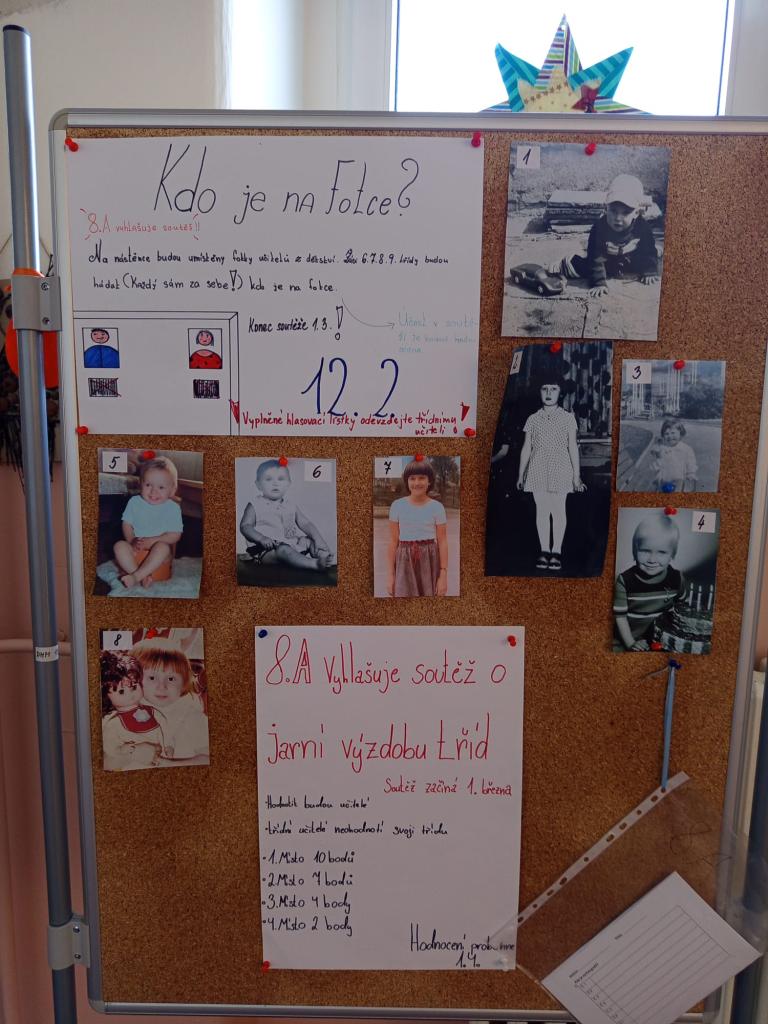 Kdo je na fotce?
8.A vyhlašuje soutěš!!
Na nástěnce budou umístěny fotky učitelů z dětství. 6.7.8.9. třídy budou
hádat (Každý sám za sebe!) kdo je na fotce.
Konec soutěže 1.3.!
Účast v soutě-
ži je
12.2.
Vyplněné hlasovací lístky odevzdejte třídnímu
učiteli!
1
2
3
4
5
6
7
8
8.A Vyhlašuje soutěž o
jarní výzdobu tříd
Soutěž začíná 1. března
Hodnotit budou učitelé
•třídní učitelé neohodnotí svoji třídu
•1.Místo 10 bodů
•2.Místo 7 bodů
•3.Místo 4 body
•4.Místo 2 body
Hodnocení proběhne
1.4.